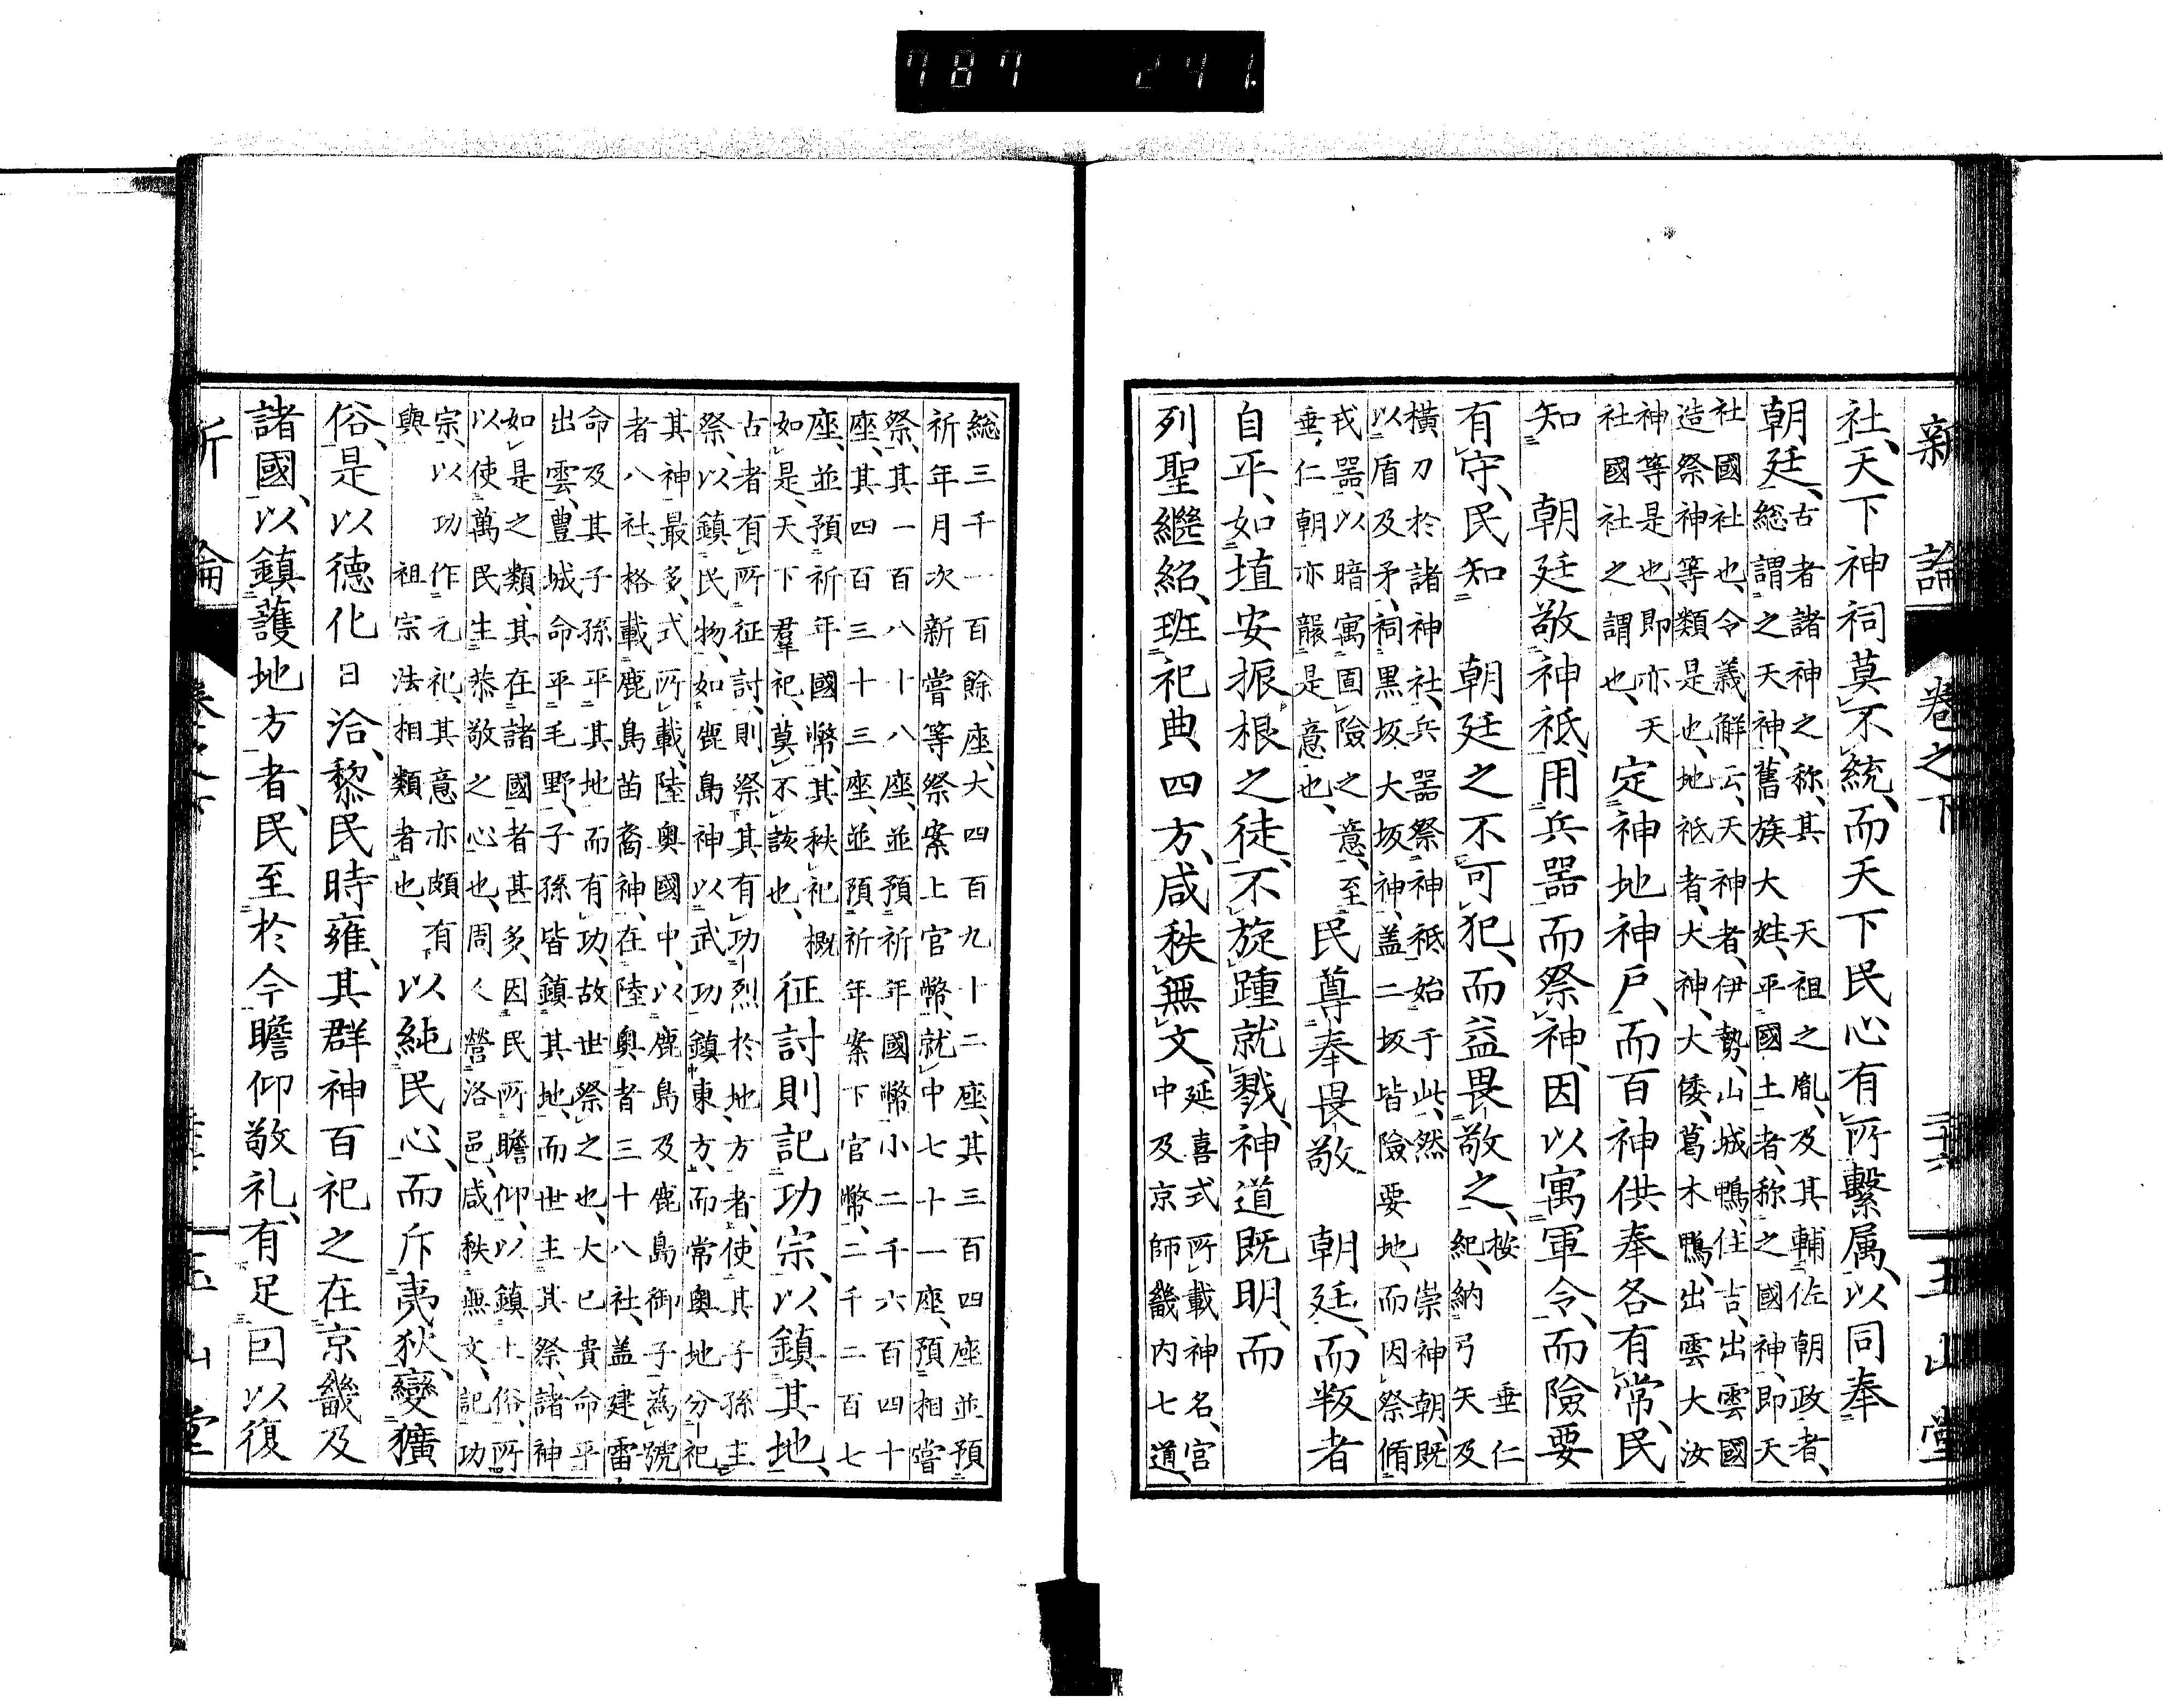 787 241.
新論 卷之下 二十六 玉山堂
社、天下神祠莫不統、而天下民心有所繫属、以同奉
朝廷、
古者諸神之称、其 天祖之胤、及其輔佐朝政者、
総謂之天神、舊族大姓、平國土者、称之國神、即天
社國社也、令義解云、天神者、伊勢、山城鴨、住吉、出雲國
造祭神等類是也、地祇者、大神、大倭、葛木鴨、出雲大汝
神等是也、即亦天
社國社之謂也、
定神地神戶、而百神供奉各有常、民
知 朝廷敬神祇、用兵器而祭神、因以寓軍令、而險要
有守、民知 朝廷之不可犯、而益畏敬之、
按 垂仁
紀、納弓矢及
橫刀於諸神社、兵器祭神祇始于此、然 崇神朝、既
以盾及矛、祠黑坂大坂神、盖二坂皆險要地、而因祭脩
戎器、以暗寓固險之意、至
垂仁朝亦襲是意也、
民尊奉畏敬 朝廷、而叛者
自平、如埴安振根之徒、不旋踵就戮、神道既明、而
列聖繼紹、班祀典四方、咸秩無文、
延喜式所載神名、官
中及京師畿内七道、
総三千一百餘座、大四百九十二座、其三百四座並預
祈年月次新嘗等祭案上官幣、就中七十一座、預相嘗
祭、其一百八十八座、並預祈年國幣小二千六百四十
座、其四百三十三座、並預祈年案下官幣、二千二百七
座、並預祈年國幣、其秩祀概
如是、天下羣祀、莫不該也、
征討則記功宗、以鎮其地、
古者有所征討、則祭其有功烈於地方者、使其子孫主
祭、以鎮民物、如鹿島神以武功鎮東方、而常奧地分祀
其神最多、式所載、陸奧國中、以鹿島及鹿島御子為號
者八社、格載鹿島苗裔神、在陸奧者三十八社、盖建雷
命及其子孫平其地而有功、故世祭之也、大已貴命平
出雲、豊城命平毛野、子孫皆鎮其地、而世主其祭、諸神
如是之類、其在諸國者甚多、因民所瞻仰、以鎮土俗、所
以使萬民生恭敬之心也、周人營洛邑、咸秩無文、記功
宗、以功作元祀、其意亦頗有
與 祖宗法相類者也、
以純民心、而斥夷狄、變獷
俗、是以德化日洽、黎民時雍、其群神百祀之在京畿及
諸國、以鎮護地方者、民至於今瞻仰敬礼、有足囙以復